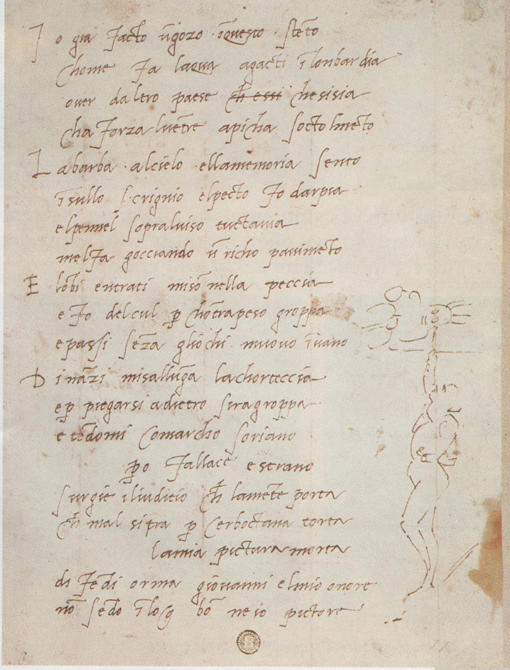 I o gia facto ũgozo ĩquesto stẽto
chome fa laqua agacti ĩ lonbardia
over daltro paese ch essi chesisia
cha forza luẽtre apicha socto lmẽto
L abarba alcielo ellamemoria sento
ĩsullo scrignio elpecto fo darpia
elpennel sopraluiso tuctauia
melfa gocciando ũ richo pauimẽto
E lõbi entrati misõ nella peccia
e fo delcul p̱ chõtrapeso groppa
e passi sẽza gliochi muovo ĩuano
D inãzi misallũga lachorteccia
e p̱ piegarsi adietro siragroppa
e tẽdomi comarcho soriano
p̱o fallace e strano
surgie iliudicio ch̄ lamẽte porta
ch̄ mal si tra p̱ cerboctana torta
lamia pictura morta
di fẽdi orma giovanni elmio onore
nõ sẽdo ĩ loco bõ ne io pictore